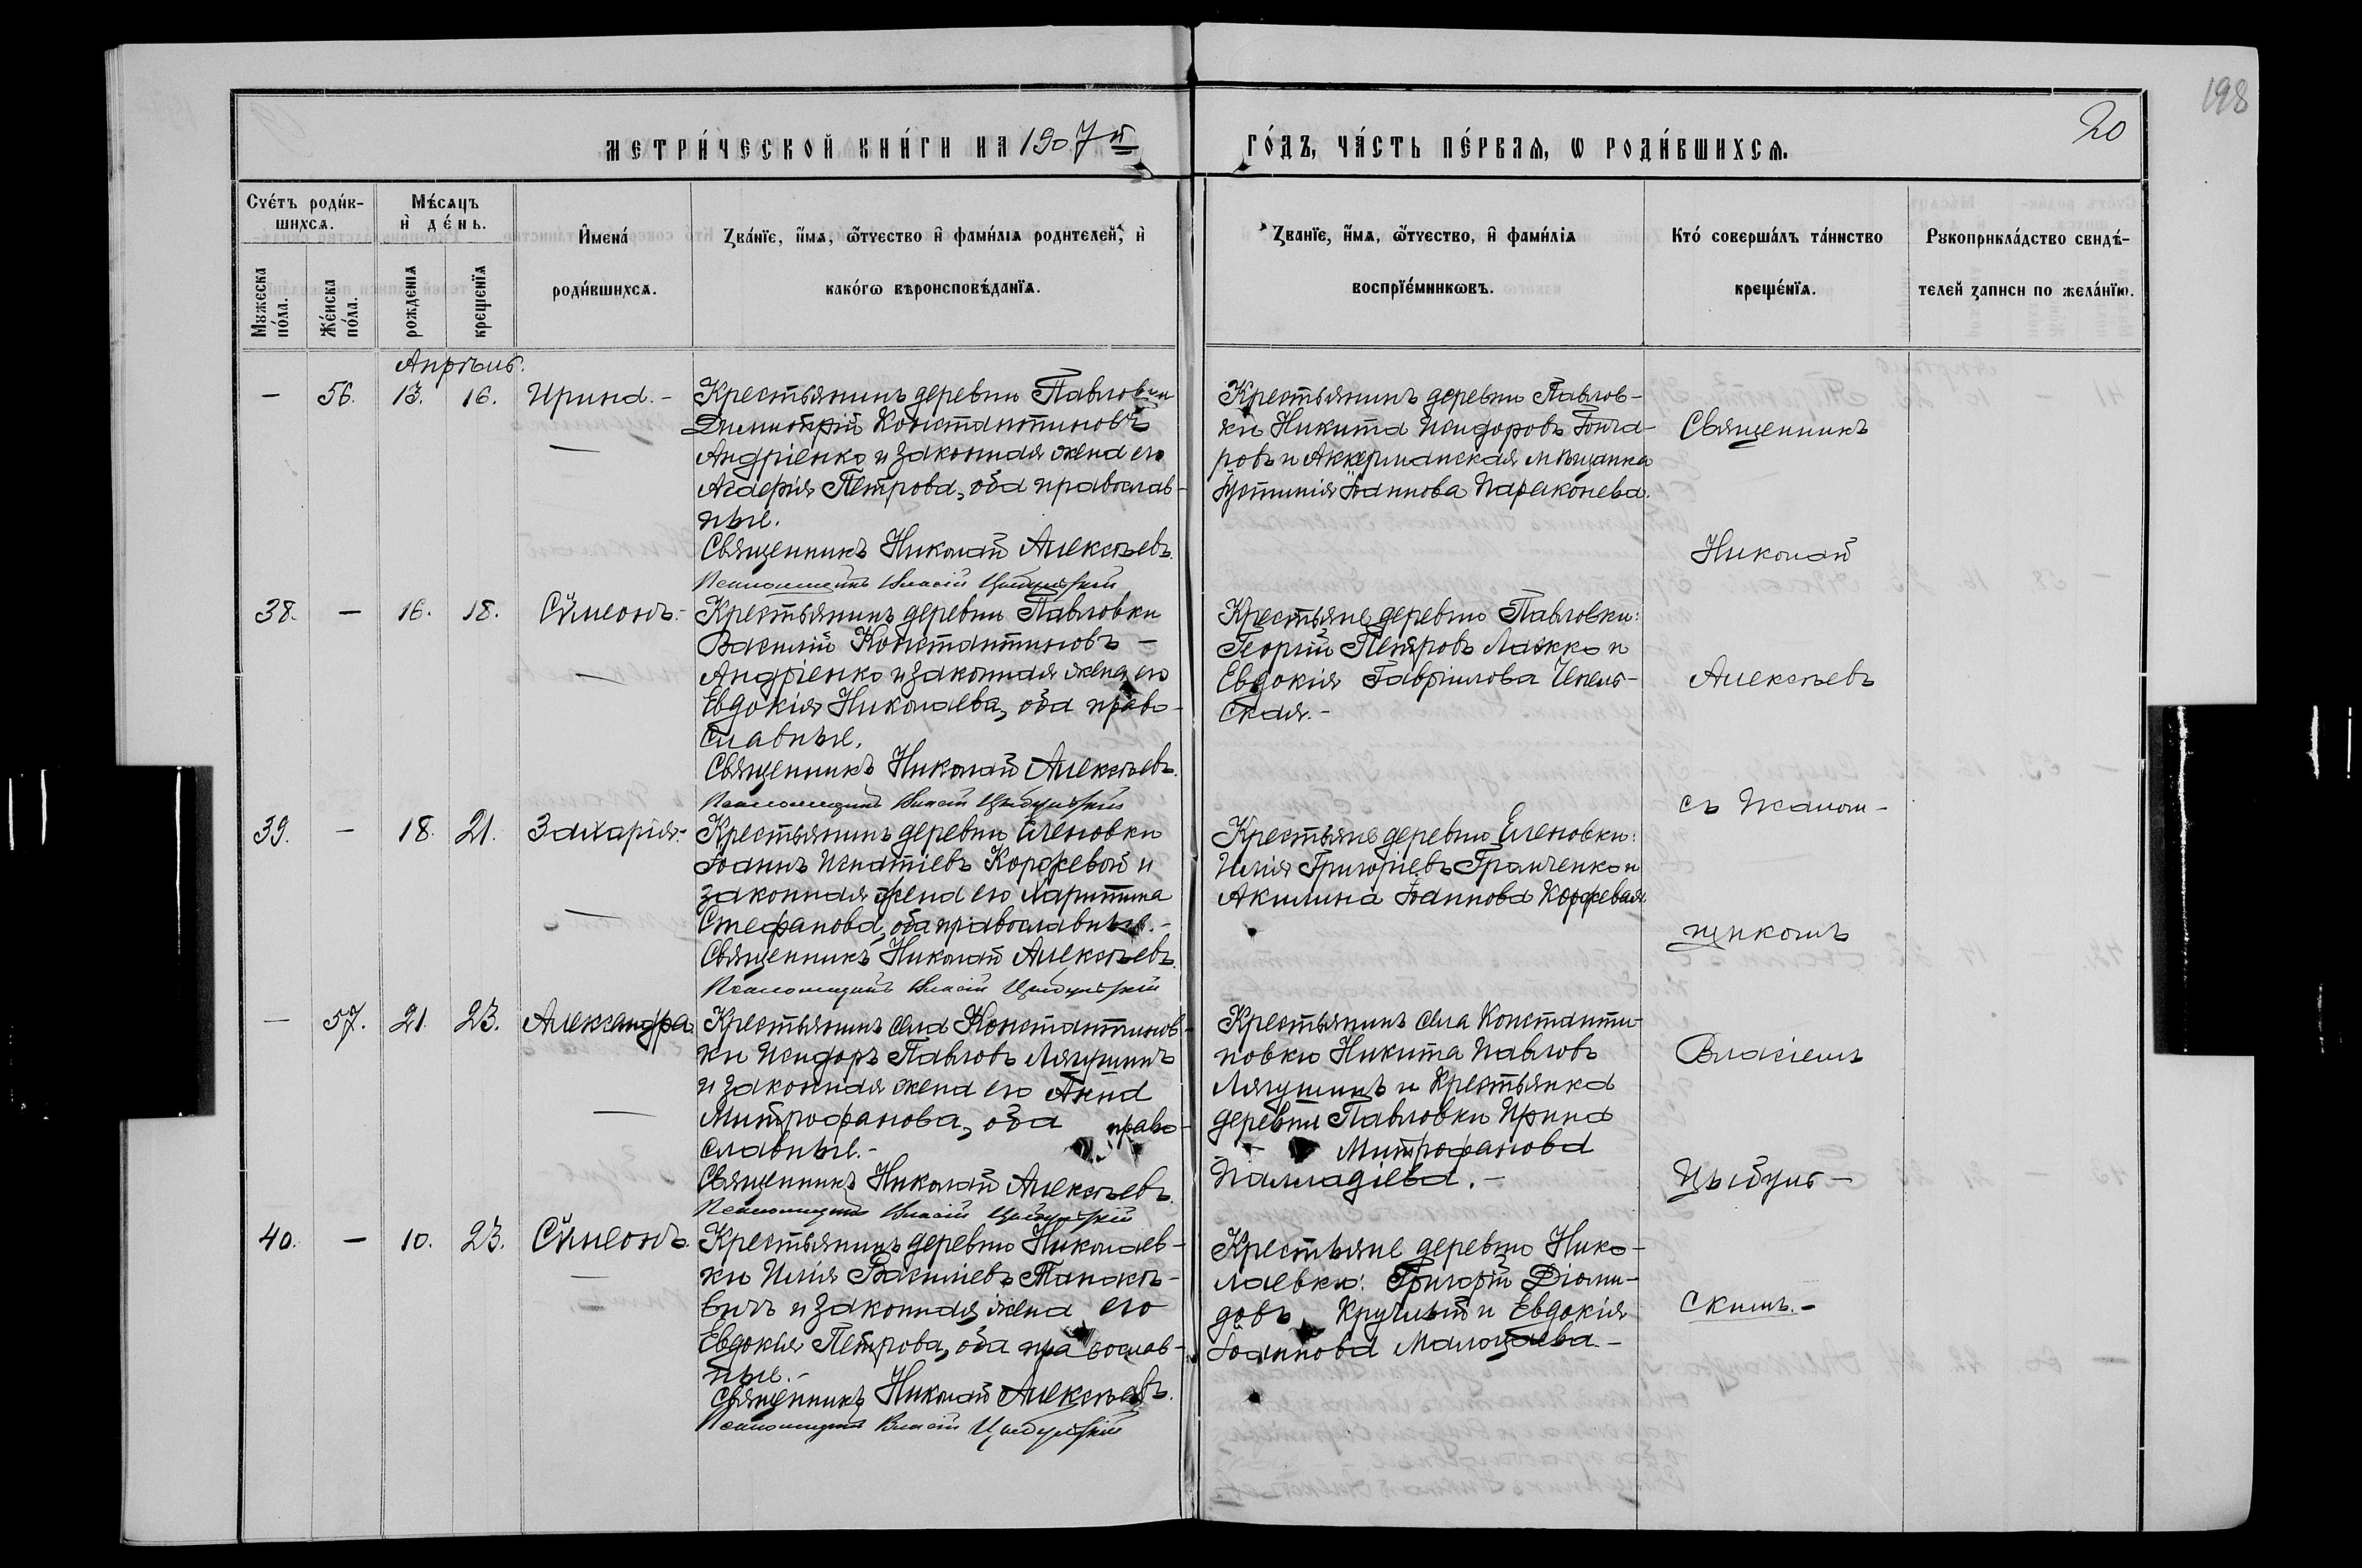 198
20
МЕТРИ́ЧЕСКОЙ КНИ́ГИ НА 1907й ГО́ДЪ, ЧА́СТЬ ПЕ́РВАЯ, Ѡ РОДИ́ВШИХСѦ.
Сче́тъ роди́в-
шихсѧ.
Мꙋжеска
по́ла.
Же́нска
по́ла.
Мѣ́сѧцъ
и҆ де́нь.
рожденїѧ
крещенїѧ
И҆мена́
роди́вшихсѧ.
Зва́нїе, и҆́мѧ, ѻ҆́тчество и҆ фамѝлїѧ родителей, и҆
како́гѡ вѣроисповѣ́данїѧ.
Званїе, и҆́мѧ, ѻ҆́тчество, и҆ фами́лїѧ
воспрїе́мникѡвъ.
Кто́ соверша́лъ та́инство
креще́нїѧ.
Рꙋкоприкла́дство свидѣ́-
телей записи по жела́нїю.
Апрѣль.
— 56. 13. 16. Ирина. —
Крестьянинъ деревни Павловки
Димитрій Константиновъ
Андріенко и законная жена его
Агафія Петрова, оба православ-
ные.
Священникъ Николай Алексѣевъ.
Псаломщикъ Власій Цыбульскій
Крестьянинъ деревни Павлов-
ки Никита Исидоровъ Гонча-
ровъ и Аккерманская мѣщанка
Іустинія Іоаннова Параконева.
38. — 16. 18. Сѵмеонъ. —
Крестьянинъ деревни Павловки
Василій Константиновъ —
Андріенко и законная жена его
Евдокія Николаева, оба право-
славные.
Священникъ Николай Алексѣевъ.
Псаломщикъ Власій Цыбульскій
Крестьяне деревни Павловки:
Георгій Петровъ Лажко и
Евдокія Гавріилова
ская. —
39. — 18. 21. Захарія. —
Крестьянинъ деревни Еленовки
Іоаннъ Игнатіевъ Коржевой и
законная жена его Харитина
Стефанова, оба православные. —
Священникъ Николай Алексѣевъ.
Псаломщикъ Власій Цыбульскій
Крестьяне деревни Еленовки:
Илія Григоріевъ Гранченко и
Акилина Іоаннова Коржевая.
— 57. 21. 23. Александра
Крестьянинъ села Константинов-
ки Исидоръ Павловъ Лягушинъ
и законная жена его Анна
Митрофанова, оба право-
славные. —
Священникъ Николай Алексѣевъ.
Псаломщикъ Власій Цыбульскій
Крестьянинъ села Константи-
новки Никита Павловъ
Лягушинъ и Крестьянка
деревни Павловки Ирина
Митрофанова
Палладіева. —
40. — 10. 23. Сѵмеонъ.
Крестьянинъ деревни Николаев-
ки Илія Василіевъ Танакѣ-
вичъ и законная жена его
Евдокія Петрова, оба православ-
ные. —
Священникъ Николай Алексѣевъ.
Псаломщикъ Власій Цыбульскій
Крестьяне деревни Нико-
лаевки: Григорій Діоми-
довъ Круглый и Евдокія
Іоаннова —
Священникъ
Николай
Алексѣевъ
съ Псалом-
щикомъ
Власіемъ
Цыбуль-
скимъ. —